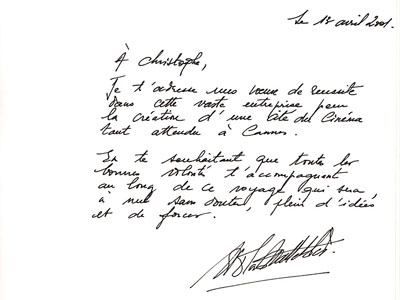 Le 18 avril 2001.
À Christophe,
Je t'adresse mes vœux de réussite
dans cette vaste entreprise pour
la création d'une Cité du Cinéma
tant attendu à Cannes.
En te souhaitant que toutes les
bonnes volontés t'accompagnent
au long de ce voyage qui sera,
à mes sans doutes, plein d'idées
et de forces.